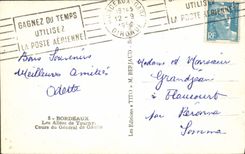 GAGNEZ DU TEMPS
UTILISEZ
LA POSTE AERIENNE
12-9
GIRONDE
Bons Souvenirs
Meilleures Amitiés
Odette
5 - BORDEAUX
Les Allées de Tourny
Cours du Général de Gaulle
Les Editions "TITO"
Madame et Monsieur
Grandjean
à Flaucourt
par Péronne
Somme